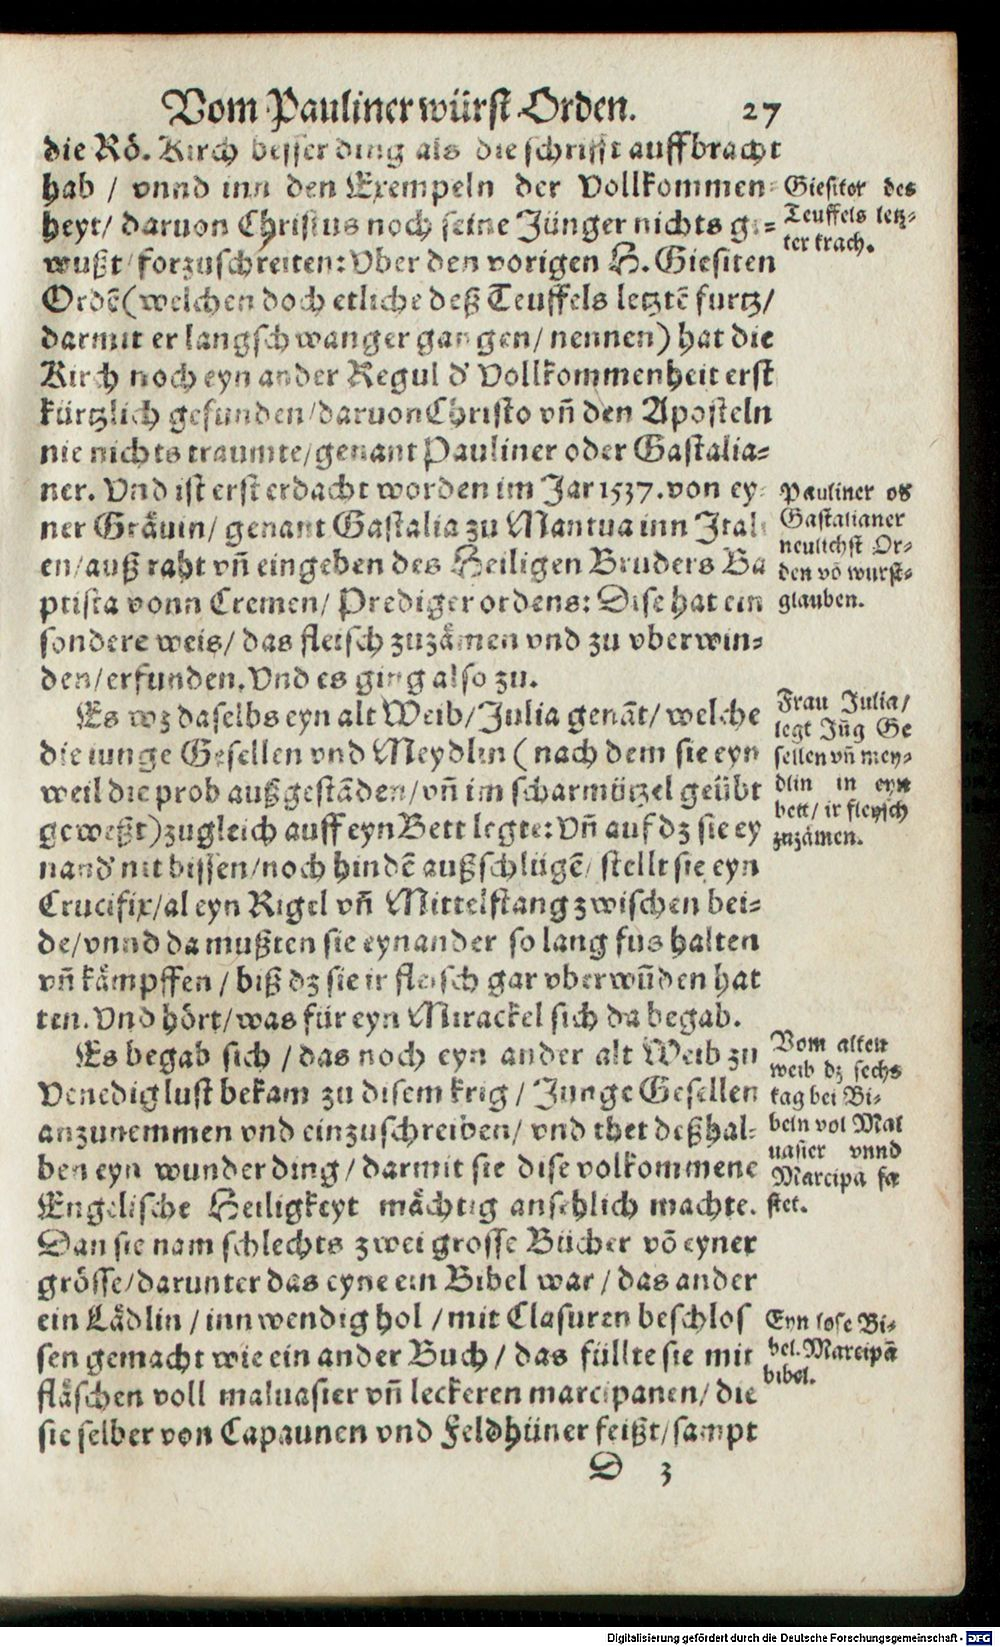 Vom Pauliner würst Orden. 27
die Rö. Kirch besser ding als die schrifft auffbracht
hab / vnnd inn den Exempeln der Vollkommen-
heyt/ daruon Christus noch seine Jünger nichts ge-
wußt/ forzuschreiten: Vber den vorigen H. Giesiten
Ordẽ (welchen doch etliche deß Teuffels letztẽ furtz/
darmit er lang schwanger gangen/ nennen) hat die
Kirch noch eyn ander Regul d' Vollkommenheit erst
kürtzlich gefunden/ daruon Christo vñ den Aposteln
nie nichts traumte/ genant Pauliner oder Gastalia-
ner. Vnd ist erst erdacht worden im Jar 1537. von ey-
ner Gräuin/ genant Gastalia zu Mantua inn Itali
en/ auß raht vñ eingeben des Heiligen Bruders Ba
ptista vonn Cremen/ Prediger ordens: Dise hat ein
sondere weis/ das fleisch zuzämen vnd zu vberwin-
den/ erfunden. Vnd es ging also zu.
Es wz daselbs eyn alt Weib/ Julia genãt/ welche
die iunge Gesellen vnd Meydlin (nach dem sie eyn
weil die prob außgestãden/ vñ im scharmützel geübt
geweßt) zugleich auff eyn Bett legte: Vñ auf dz sie ey
nand' nit bissen/ noch hindẽ außschlügẽ/ stellt sie eyn
Crucifix/ al eyn Rigel vñ Mittelstang zwischen bei-
de/ vnnd da mußten sie eynander so lang fus halten
vñ kämpffen / biß dz sie ir fleisch gar vberwũden hat
ten. Vnd hört/ was für eyn Mirackel sich da begab.
Es begab sich / das noch eyn ander alt Weib zu
Venedig lust bekam zu disem krig / Junge Gesellen
anzunemmen vnd einzuschreiben/ vnd thet deßhal-
ben eyn wunder ding / darmit sie dise volkommene
Engelische Heiligkeyt mächtig ansehlich machte.
Dan sie nam schlechts zwei grosse Bücher võ eyner
grösse/ darunter das eyne ein Bibel war / das ander
ein Lädlin / innwendig hol / mit Clasuren beschlos
sen gemacht wie ein ander Buch / das füllte sie mit
fläschen voll maluasier vñ leckeren marcipanen/ die
sie selber von Capaunen vnd Feldhüner feißt/ sampt
D 3
Giesitor des
Teuffels letz-
ter krach.
Pauliner od'
Gastalianer
neulichst Or-
den võ wurst-
glauben.
Frau Julia/
legt Jũg Ge
sellen vñ mey-
dlin in eyn
bett/ ir fleysch
zuzämen.
Vom alten
weib dz sechs
tag bei Bi-
beln vol Mal
uasier vnnd
Marcipã fa
stet.
Eyn lose Bi-
bel. Marcipã
bibel.
Digitalisierung gefördert durch die Deutsche Forschungsgemeinschaft - DFG